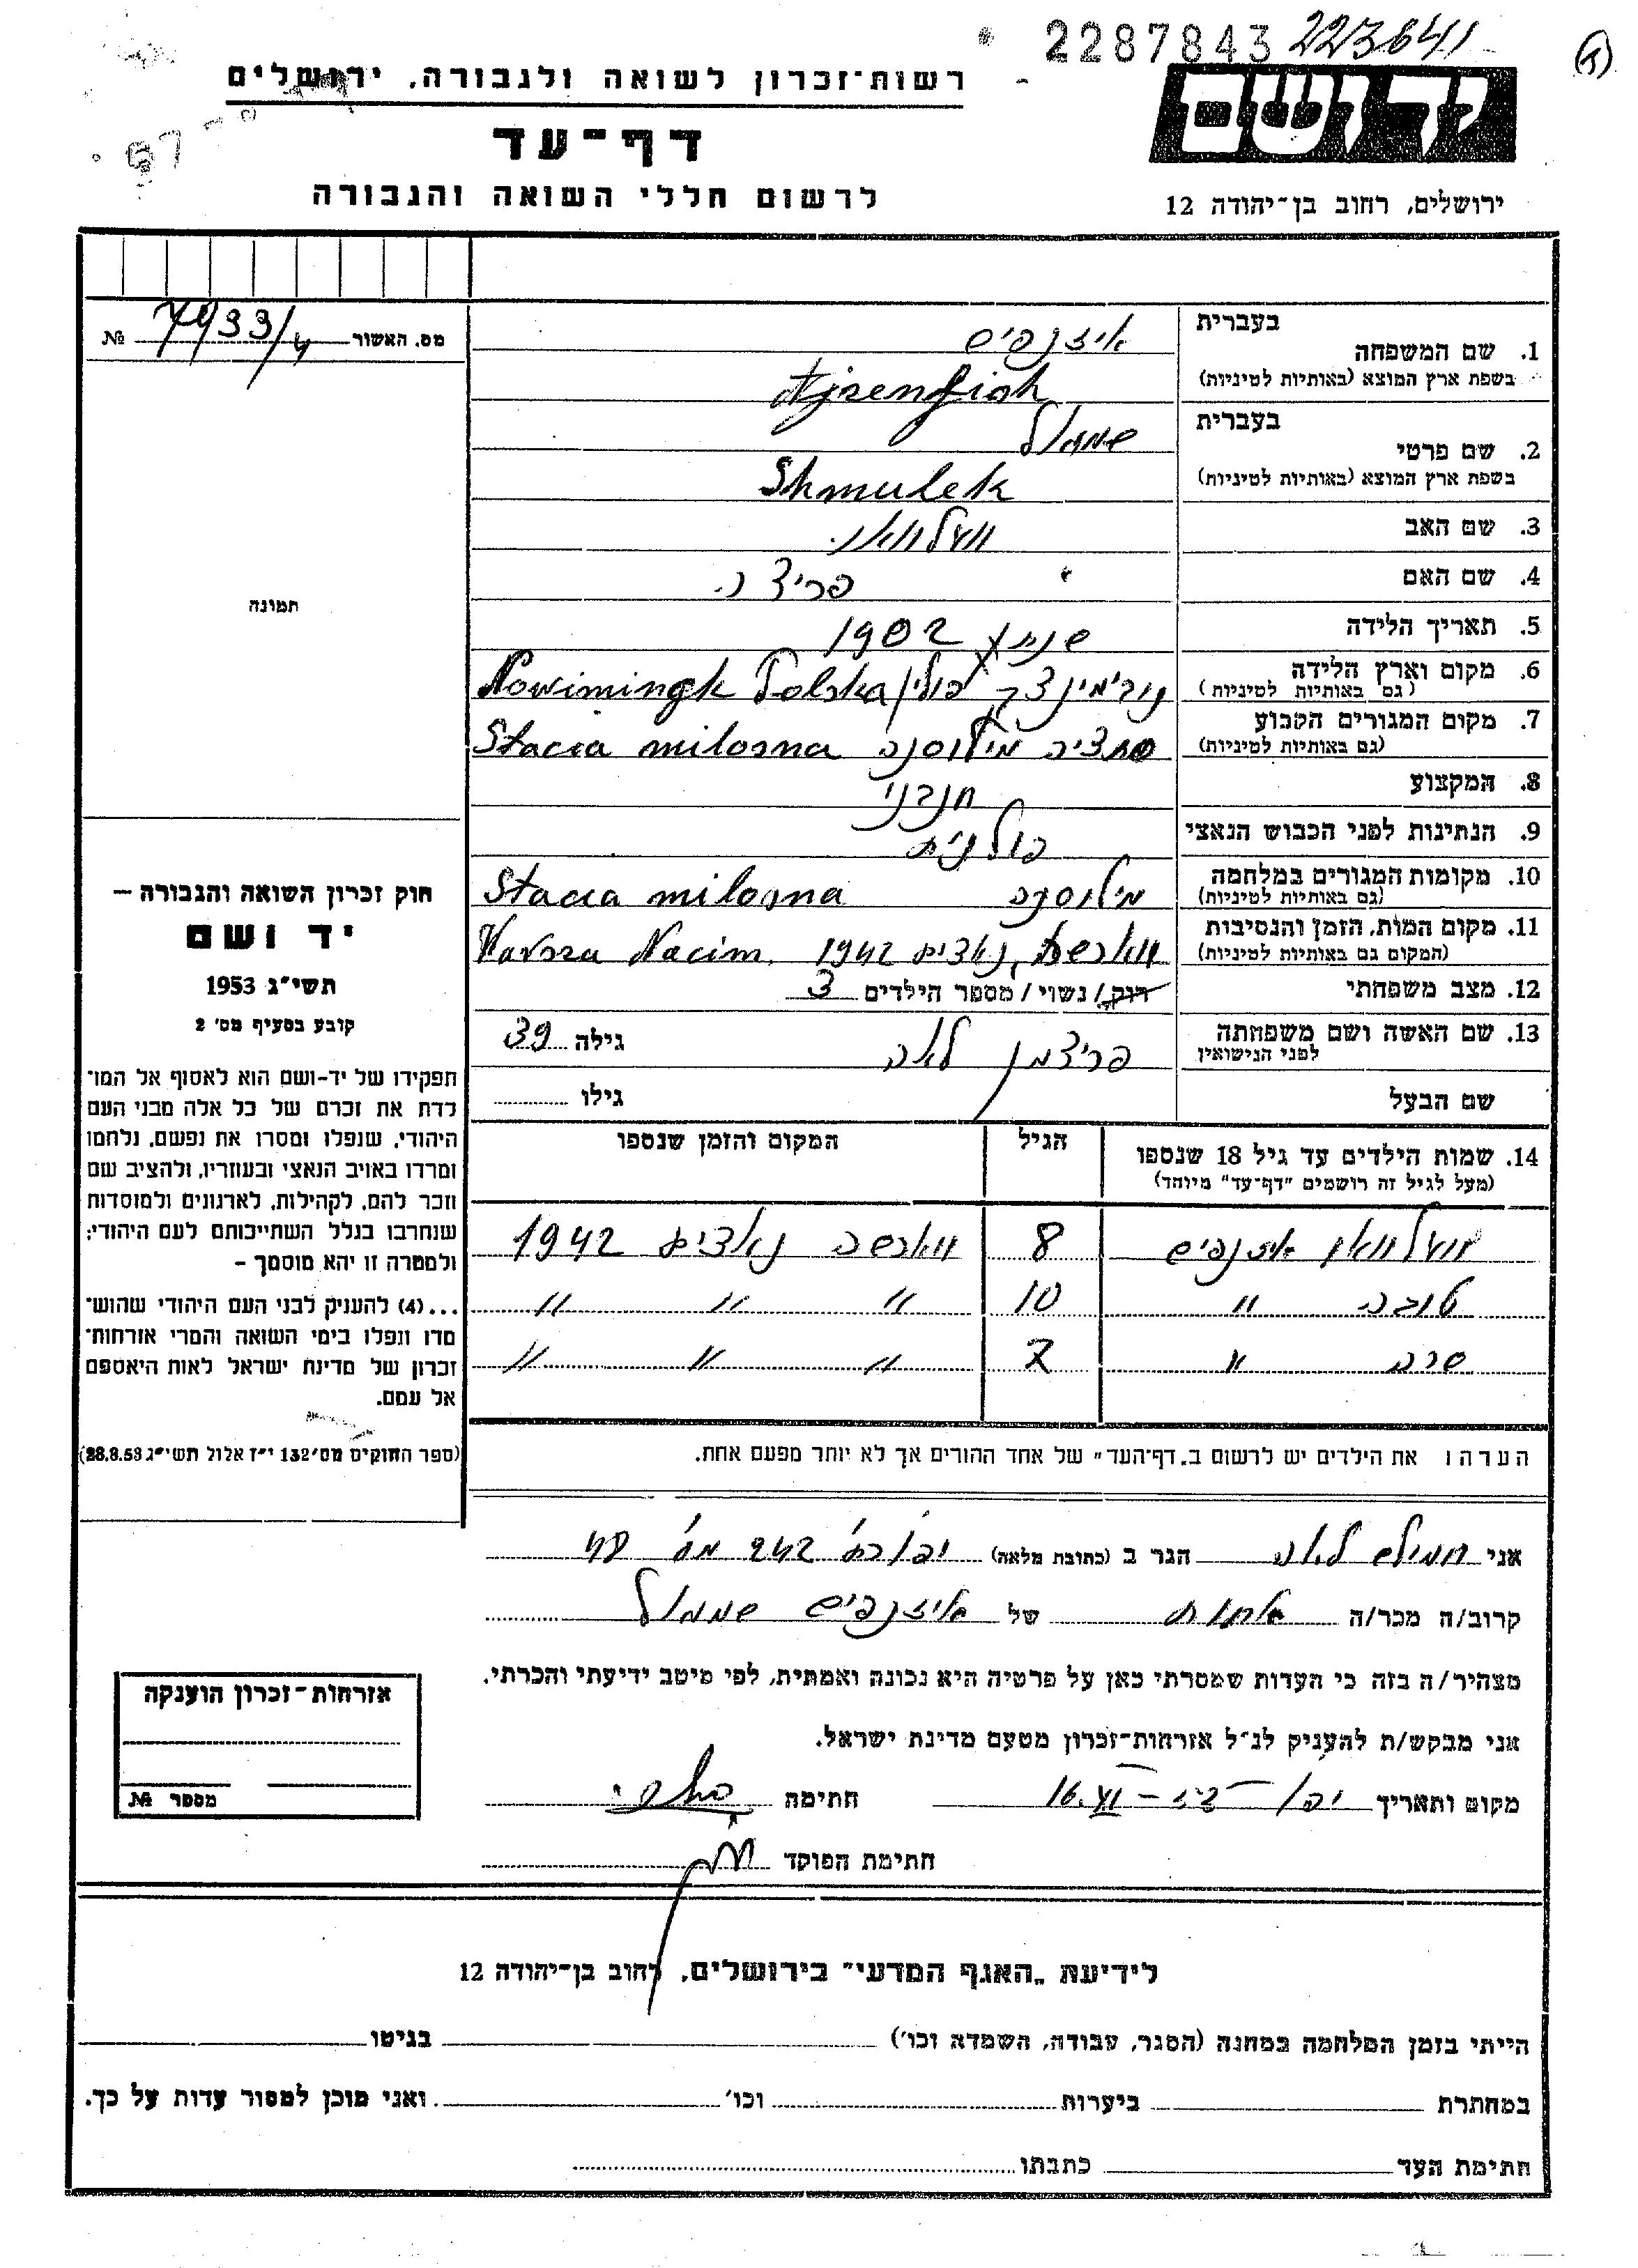 2287843 223641
רשות־זכרון לשואה ולגבורה, ירושלים
67
דף־עד
לרשום חללי השואה והגבורה
יד ושם
ירושלים, רחוב בן־יהודה 12
מס. האשור 7433/4 №
תמונה
בעברית
1. שם המשפחה איזנפיש
בשפת ארץ המוצא (באותיות לטיניות) Ajzenfish
בעברית
2. שם פרטי שמואל
בשפת ארץ המוצא (באותיות לטיניות) Shmulek
3. שם האב
4. שם האם
5. תאריך הלידה שנת 1902
6. מקום וארץ הלידה פולין Nowimingk Polska
(גם באותיות לטיניות)
7. מקום המגורים הקבוע מילוסנה Stacia milosna
(גם באותיות לטיניות)
8. המקצוע חנוני
9. הנתינות לפני הכבוש הנאצי פולנית
10. מקומות המגורים במלחמה מילוסנה Stacia milosna
(גם באותיות לטיניות)
11. מקום המות, הזמן והנסיבות ווארשה, נאצים 1942 Varsza Nacim.
(המקום גם באותיות לטיניות)
12. מצב משפחתי רווק / נשוי / מספר הילדים 3
13. שם האשה ושם משפחתה פריצמן לאה גילה 39
לפני הנישואין
שם הבעל גילו
14. שמות הילדים עד גיל 18 שנספו הגיל המקום והזמן שנספו
(מעל לגיל זה רושמים "דף־עד" מיוחד)
איזנפיש 8 ווארשה נאצים 1942
טובה " 10 " " "
שרה " 7 " " "
הערה: את הילדים יש לרשום ב„דף־העד" של אחד ההורים אך לא יותר מפעם אחת.
חוק זכרון השואה והגבורה –
יד ושם
תשי"ג 1953
קובע בסעיף מס' 2
תפקידו של יד-ושם הוא לאסוף אל המו־
לדת את זכרם של כל אלה מבני העם
היהודי, שנפלו ומסרו את נפשם, נלחמו
ומרדו באויב הנאצי ובעוזריו, ולהציב שם
וזכר להם, לקהילות, לארגונים ולמוסדות
שנחרבו בגלל השתייכותם לעם היהודי;
ולמטרה זו יהא מוסמך –
...(4) להעניק לבני העם היהודי שהוש־
מדו ונפלו בימי השואה והמרי אזרחות־
זכרון של מדינת ישראל לאות היאספם
אל עמם.
(ספר החוקים מס' 132 י"ז אלול תשי"ג 28.8.53)
אני לאה הגר ב (כתובת מלאה) יפו 242 מס' 48
קרוב/ה מכר/ה אחות של איזנפיש שמואל
מצהיר/ה בזה כי העדות שמסרתי כאן על פרטיה היא נכונה ואמתית, לפי מיטב ידיעתי והכרתי.
אני מבקש/ת להעניק לנ"ל אזרחות־זכרון מטעם מדינת ישראל.
מקום ותאריך יפו 16.VI חתימה
חתימת הפוקד
אזרחות־זכרון הוענקה
מספר №
לידיעת „האגף המדעי" בירושלים, רחוב בן־יהודה 12
הייתי בזמן המלחמה במחנה (הסגר, עבודה, השמדה וכו') בגיטו
במחתרת ביערות וכו' ואני מוכן למסור עדות על כך.
חתימת העד כתבתו